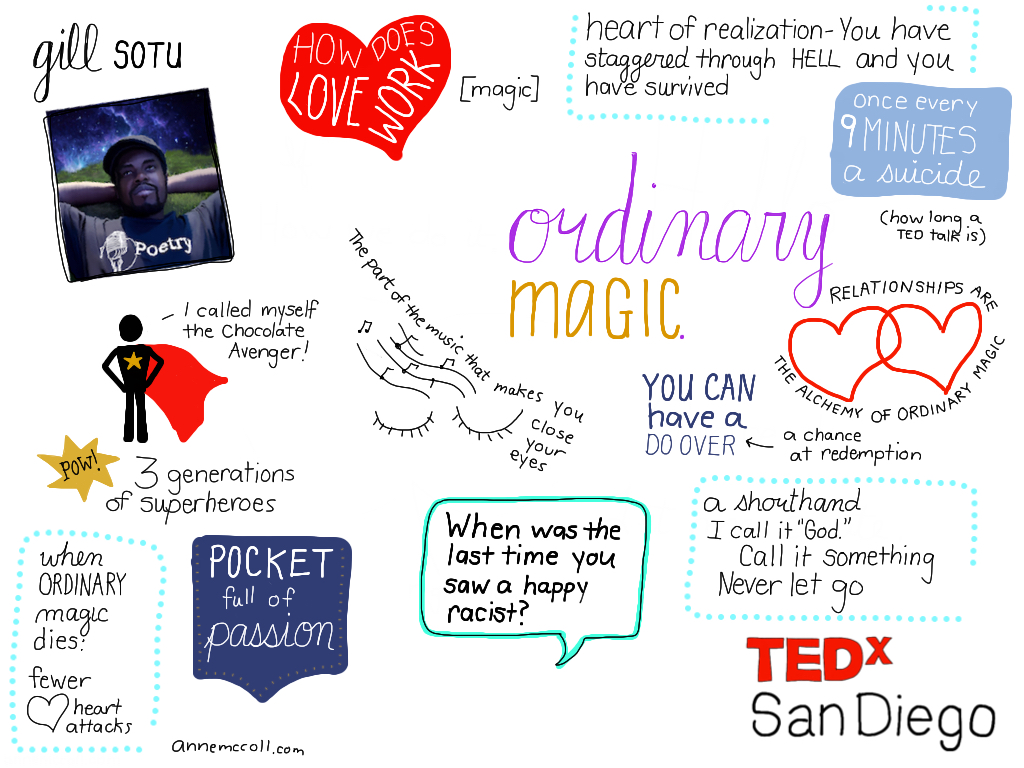 gill SOTU
Poetry
HOW DOES
LOVE WORK
[magic]
heart of realization-You have
staggered through HELL and you
have survived
once every
9 MINUTES
a suicide
(how long a
TED talk is)
ordinary
MAGIC.
RELATIONSHIPS ARE
THE ALCHEMY OF ORDINARY MAGIC
I called myself
the Chocolate
Avenger!
The part of the music that makes you
close
your
eyes
YOU CAN
have a
DO OVER
a chance
at redemption
POW!
3 generations
of superheroes
when
ORDINARY
magic
dies:
fewer
heart
attacks
POCKET
full of
passion
When was the
last time you
saw a happy
racist?
a shorthand
I call it "God."
Call it something
Never let go
TEDx
San Diego
annemccoll.com